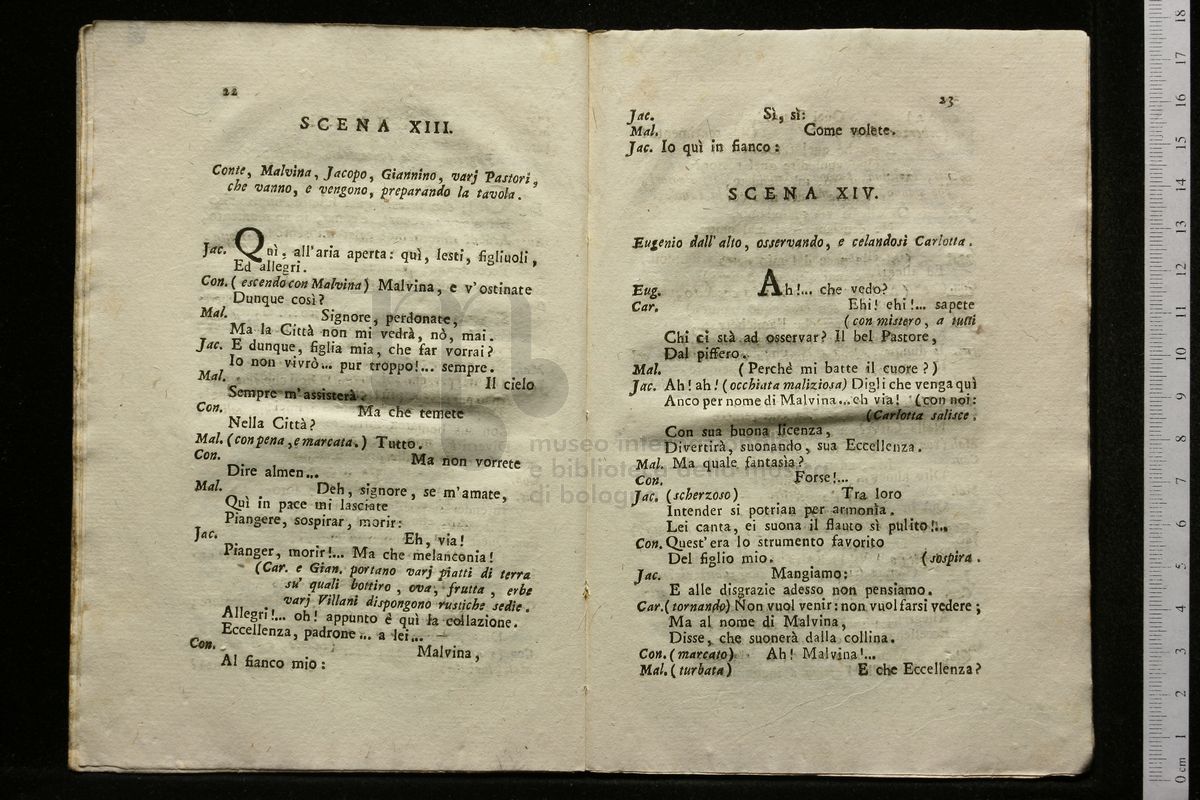 22
SCENA XIII.
Conte, Malvina, Jacopo, Giannino, varj Pastori,
che vanno, e vengono, preparando la tavola.
Jac. Quì, all'aria aperta: quì, lesti, figliuoli,
Ed allegri.
Con. (escendo con Malvina) Malvina, e v'ostinate
Dunque così?
Mal. Signore, perdonate,
Ma la Città non mi vedrà, nò, mai.
Jac. E dunque, figlia mia, che far vorrai?
Io non vivrò... pur troppo!... sempre.
Mal. Il cielo
Sempre m'assisterà.
Con. Ma che temete
Nella Città?
Mal. (con pena, e marcata.) Tutto.
Con. Ma non vorrete
Dire almen...
Mal. Deh, signore, se m'amate,
Quì in pace mi lasciate
Piangere, sospirar, morir:
Jac. Eh, via!
Pianger, morir!... Ma che melanconia!
(Car. e Gian. portano varj piatti di terra
su' quali bottiro, ova, frutta, erbe
varj Villani dispongono rustiche sedie.
Allegri!... oh! appunto è quì la collazione.
Eccellenza, padrone... a lei...
Con. Malvina,
Al fianco mio:
23
Jac. Sì, sì:
Mal. Come volete.
Jac. Io quì in fianco:
SCENA XIV.
Eugenio dall'alto, osservando, e celandosi Carlotta.
Eug. Ah!... che vedo?
Car. Ehi! ehi!... sapete
(con mistero, a tutti
Chi ci stà ad osservar? Il bel Pastore,
Dal piffero.
Mal. (Perchè mi batte il cuore?)
Jac. Ah! ah! (occhiata maliziosa) Digli che venga quì
Anco per nome di Malvina...eh via! (con noi:
(Carlotta salisce.
Con sua buona licenza,
Divertirà, suonando, sua Eccellenza.
Mal. Ma quale fantasìa?
Con. Forse!...
Jac. (scherzoso) Tra loro
Intender si potrian per armonìa.
Lei canta, ei suona il flauto sì pulito!...
Con. Quest'era lo strumento favorito
Del figlio mio. (sospira.
Jac. Mangiamo:
E alle disgrazie adesso non pensiamo.
Car. (tornando) Non vuol venir: non vuol farsi vedere;
Ma al nome di Malvina,
Disse, che suonerà dalla collina.
Con. (marcato) Ah! Malvina!...
Mal. (turbata) E che Eccellenza?
museo inte
e biblioteca della musica
di bologna
0 cm 1 2 3 4 5 6 7 8 9 10 11 12 13 14 15 16 17 18